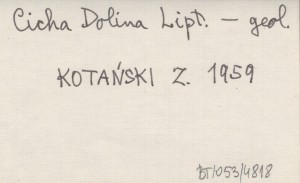 Cicha Dolina Lipt. – geol.
KOTAŃSKI Z. 1959
BT/053/4818